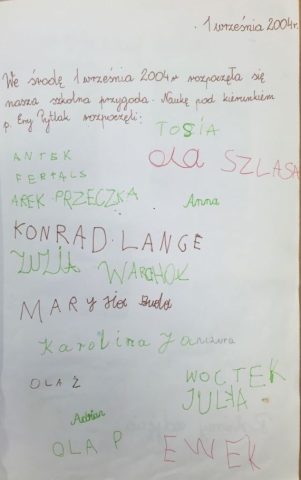 1 września 2004r.
We środę 1 września 2004r rozpoczęła się
nasza szkolna przygoda. Naukę pod kierunkiem
p. Ewy Pytlak rozpoczęli:
TOSIA
ANTEK
Ola SZLASA
AREK PRZECZKA
Anna
KONRAD LANGE
ZUZIA WARCHOŁ
MARySIA
Karolina
OLA Ż
WOCTEK
JULKA
Adrian
OLA P
EWEK